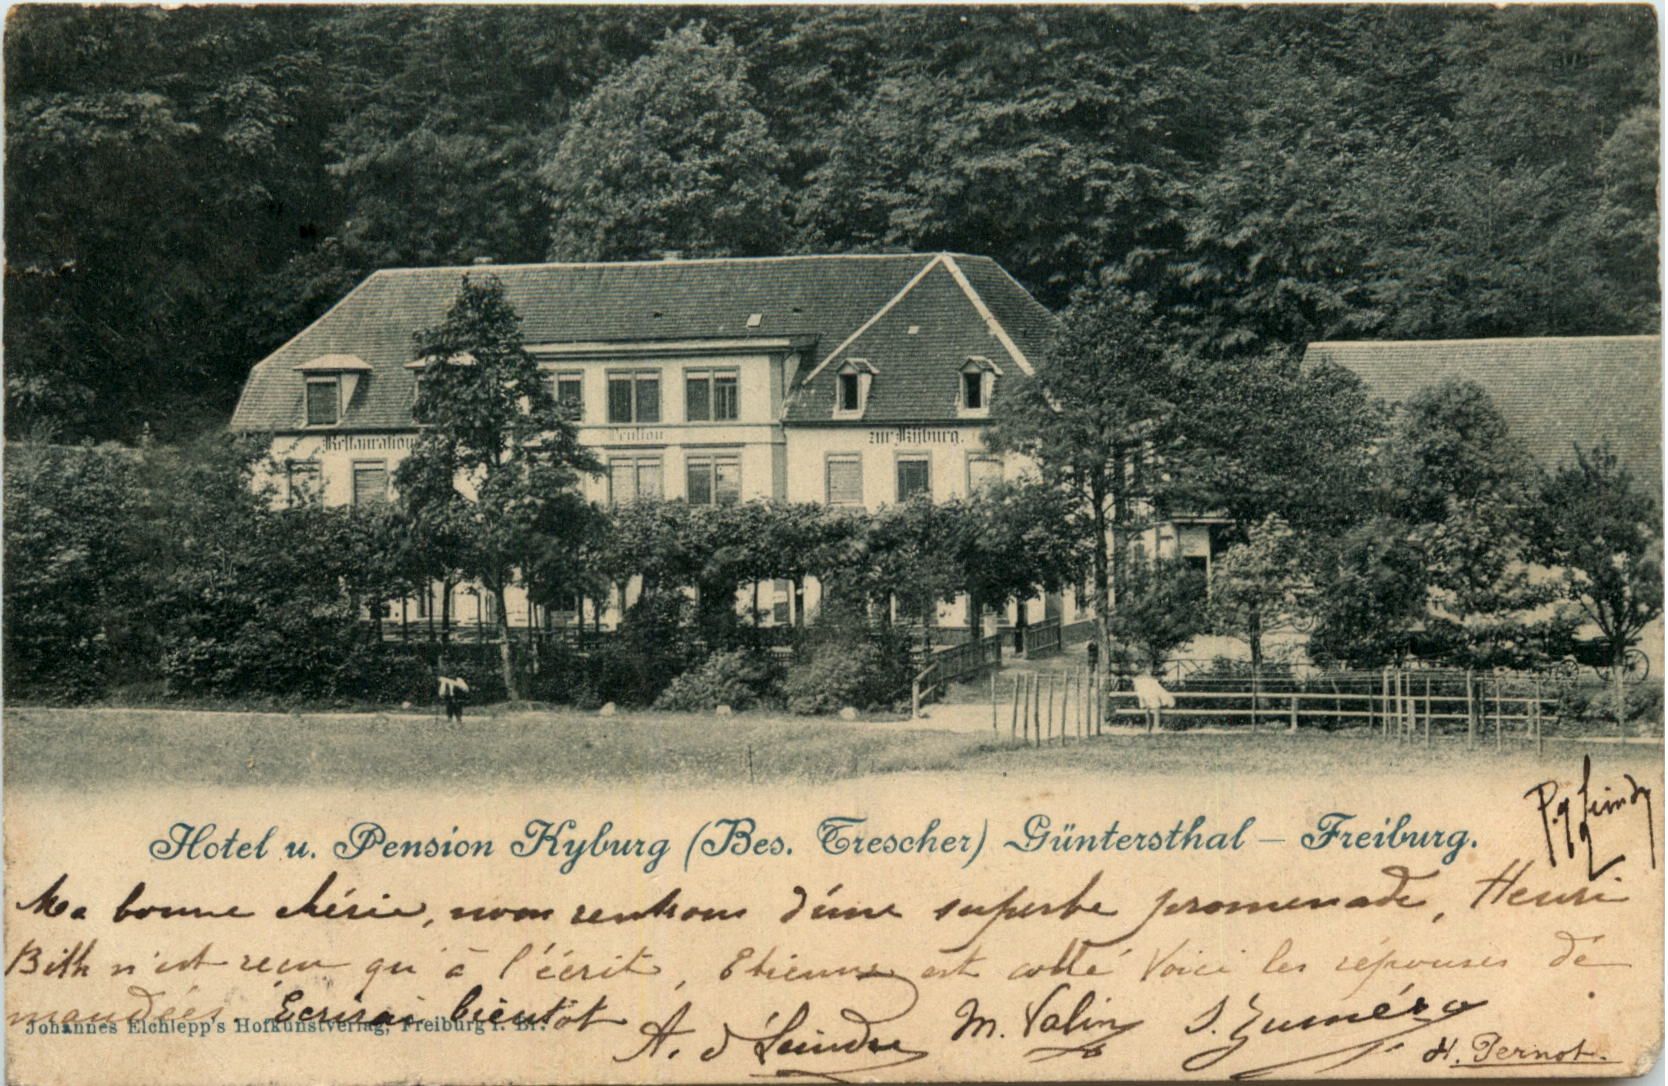 Restauration
Pension
zur Kyburg.
Hotel u. Pension Kyburg (Bes. Trescher) Güntersthal – Freiburg.
Ma bonne chérie, nous rentrons d'une superbe promenade, Henri
n'est reçu qu'à l'écrit, Etienne est collé Voici les réponses de
mandées Écrirai bientôt
Johannes Elchlepp's Hofkunstverlag, Freiburg i. Br.
M. Valin
H. Pernot.